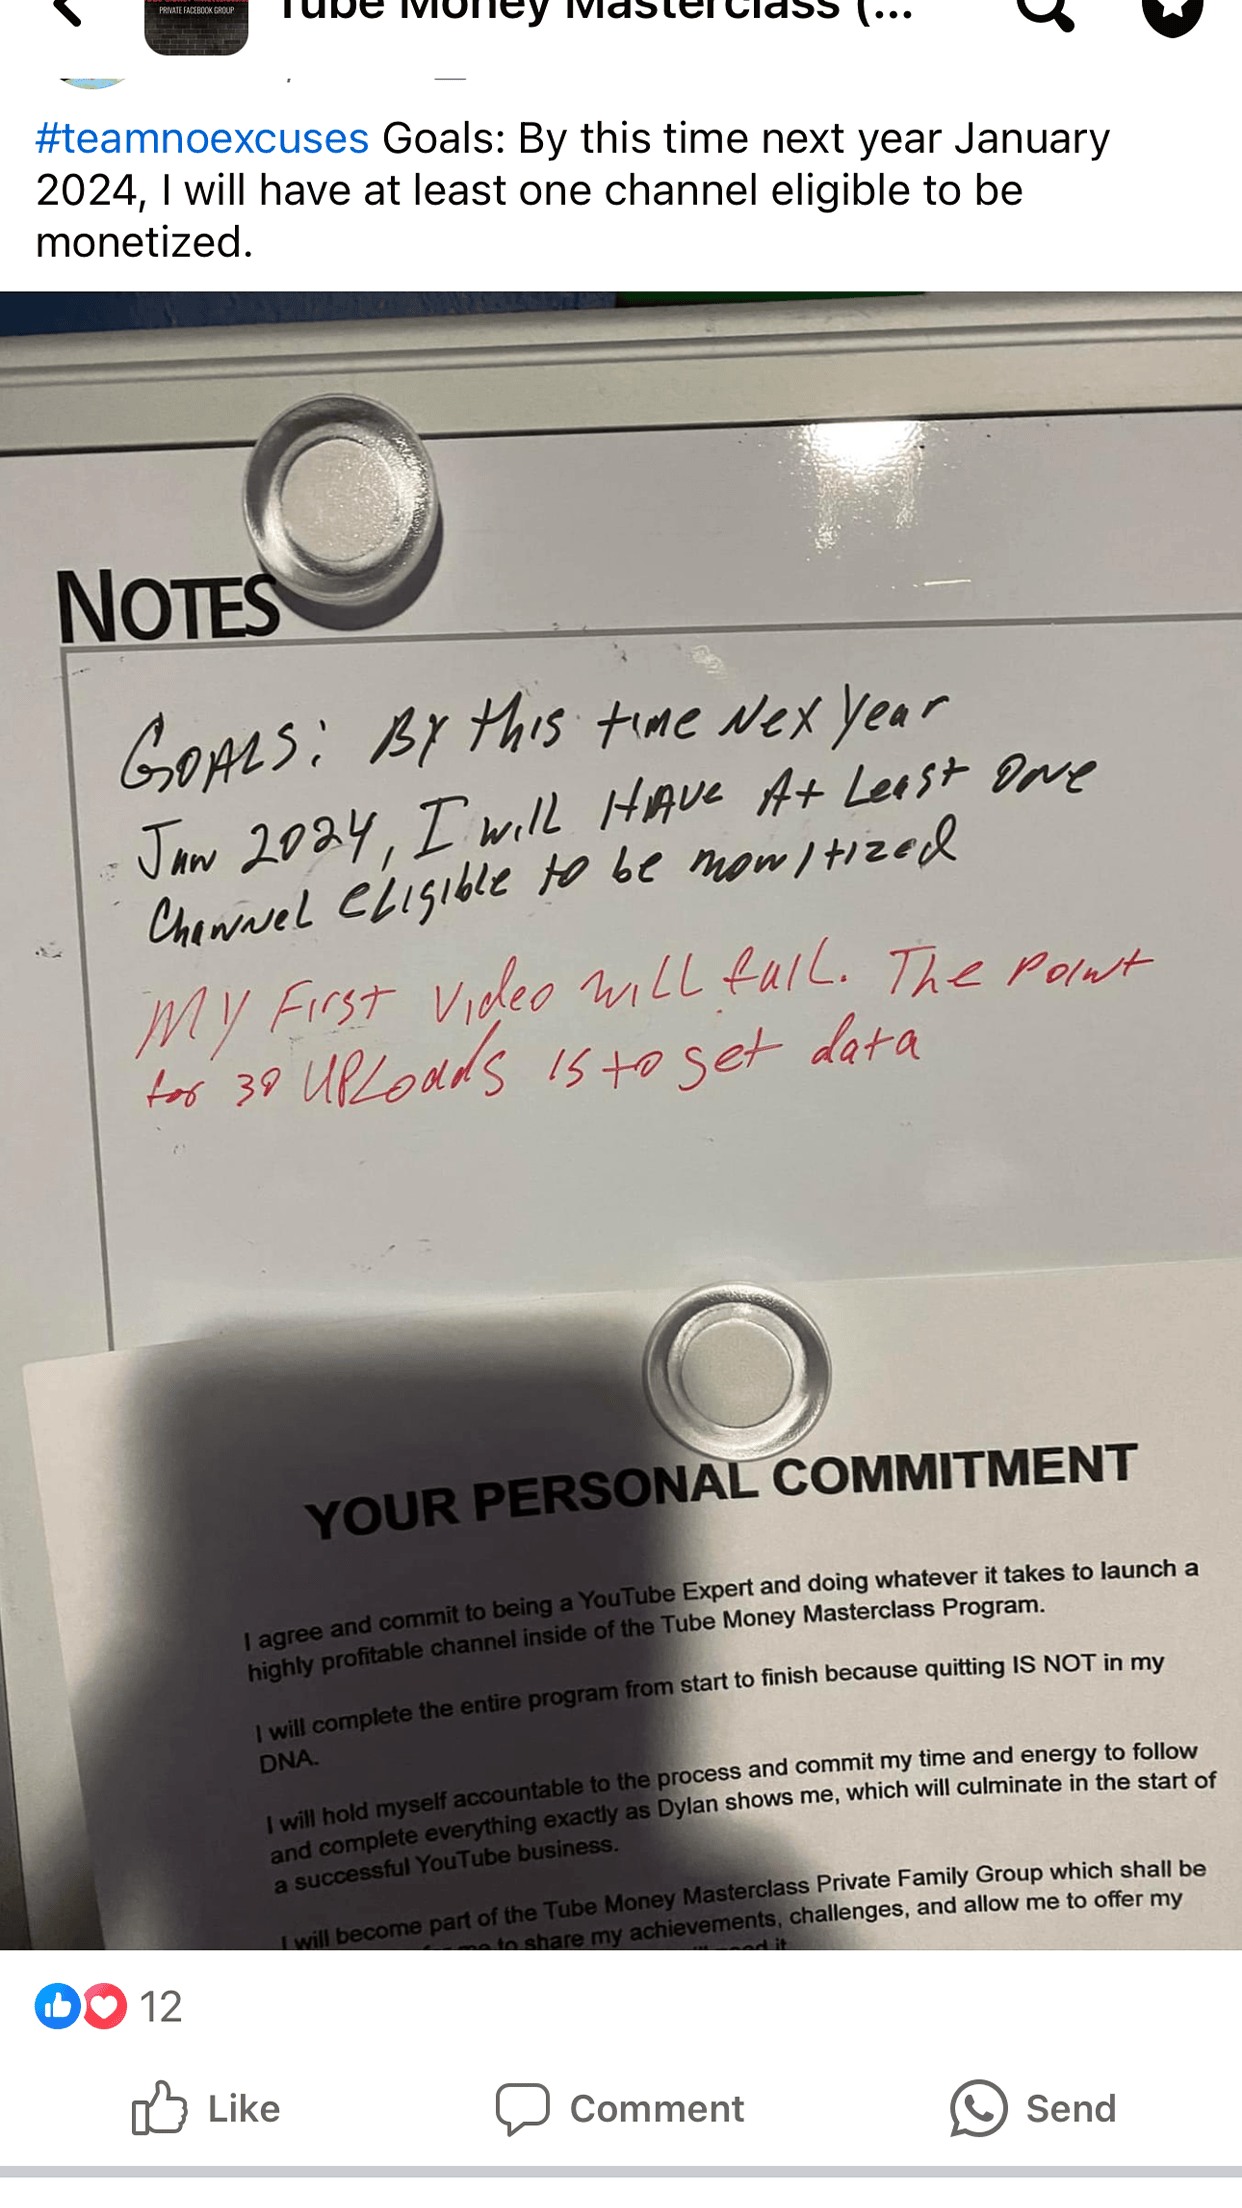 PRIVATE FACEBOOK GROUP
Tube Money Masterclass (...
#teamnoexcuses Goals: By this time next year January
2024, I will have at least one channel eligible to be
monetized.
NOTES
GOALS: By this time Nex year
Jan 2024, I will HAVE At Least one
Channel eligible to be monitized
My First Video will fail. The Point
for 30 UPLoads is to get data
YOUR PERSONAL COMMITMENT
I agree and commit to being a YouTube Expert and doing whatever it takes to launch a
highly profitable channel inside of the Tube Money Masterclass Program.
I will complete the entire program from start to finish because quitting IS NOT in my
DNA.
I will hold myself accountable to the process and commit my time and energy to follow
and complete everything exactly as Dylan shows me, which will culminate in the start of
a successful YouTube business.
I will become part of the Tube Money Masterclass Private Family Group which shall be
to share my achievements, challenges, and allow me to offer my
it
12
Like
Comment
Send